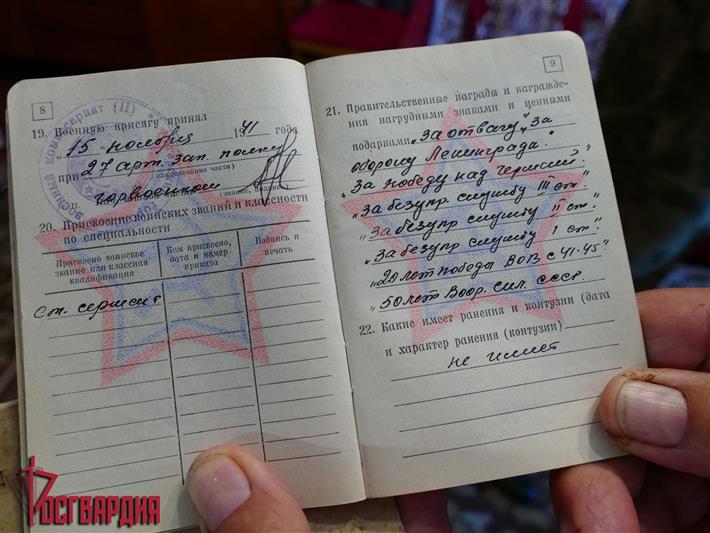 8
19. Военную присягу принял
"15" ноября 1941 года
при 27 арт. зап. полке
(наименование части)
горвоенком
20. Присвоение воинских званий и классности
по специальности
Присвоено воинское звание или классная квалификация
Кем присвоено, дата и номер приказа
Подпись и печать
ст. сержант
9
21. Правительственные награды и награжде-
ния нагрудными знаками и ценными
подарками "За отвагу", "За
оборону Ленинграда".
"За победу над Германией".
"За безупр. службу III ст."
"За безупр. службу II ст."
"За безупр. службу I ст."
"20 лет победы ВОВ с 41-45"
"50 лет Воор. Сил СССР.
22. Какие имеет ранения и контузии (дата
и характер ранения (контузии)
не имеет
Военный комиссариат (II)
РОСГВАРДИЯ